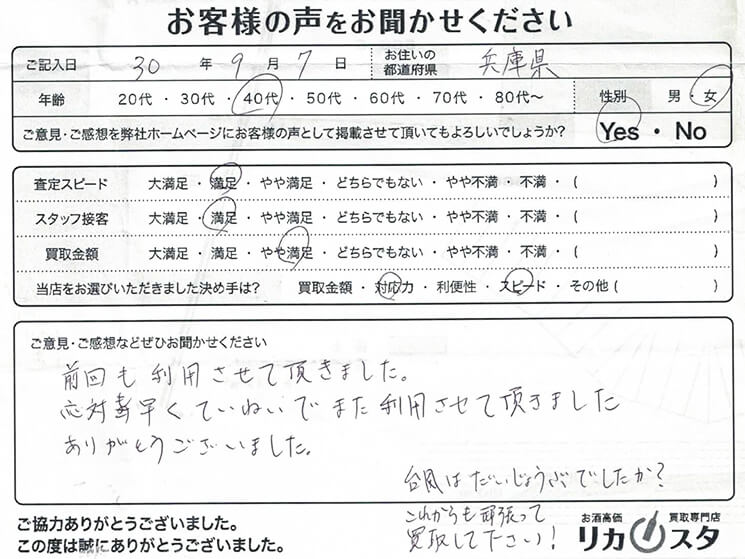 お客様の声をお聞かせください
ご記入日 30 年 9 月 7 日 お住いの都道府県 兵庫県
年齢 20代・30代・40代・50代・60代・70代・80代~ 性別 男・女
ご意見・ご感想を弊社ホームページにお客様の声として掲載させて頂いてもよろしいでしょうか? Yes・No
査定スピード 大満足・満足・やや満足・どちらでもない・やや不満・不満・( )
スタッフ接客 大満足・満足・やや満足・どちらでもない・やや不満・不満・( )
買取金額 大満足・満足・やや満足・どちらでもない・やや不満・不満・( )
当店をお選びいただきました決め手は? 買取金額・対応力・利便性・スピード・その他( )
ご意見・ご感想などぜひお聞かせください
前回も利用させて頂きました。
応対早くていねいでまた利用させて頂きました
ありがとうございました。
台風はだいじょうぶでしたか?
これからも頑張って
買取して下さい!
ご協力ありがとうございました。
この度は誠にありがとうございました。
お酒高価 買取専門店
リカスタ